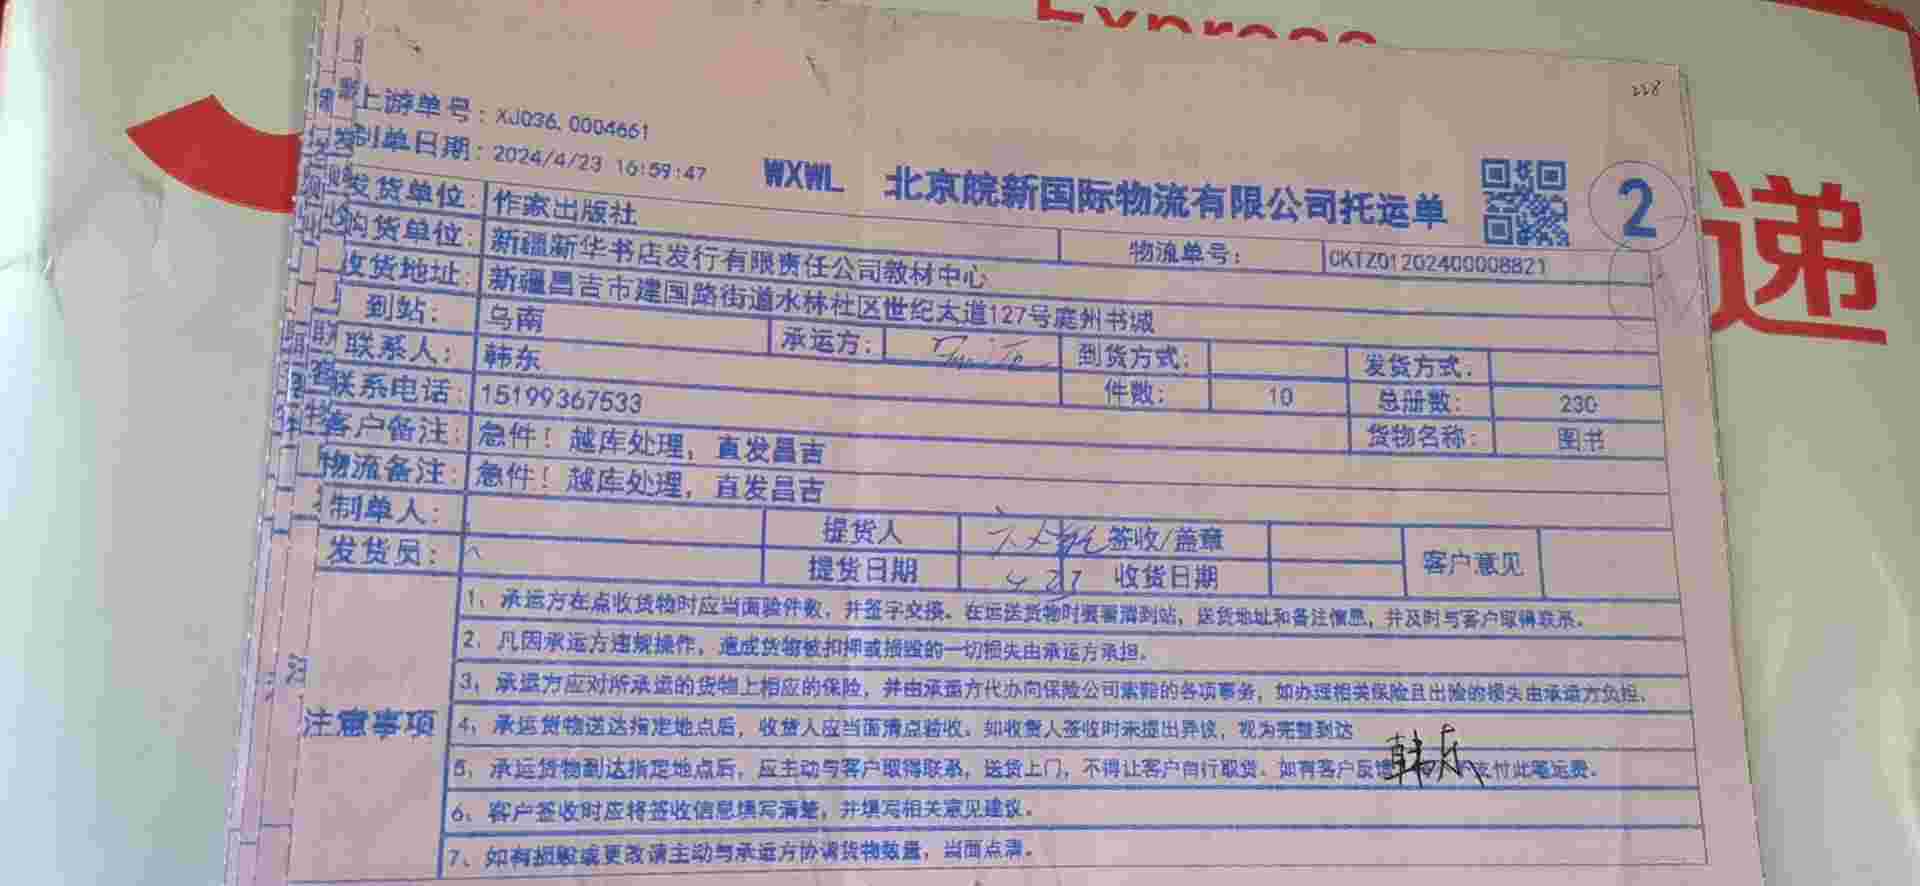 Express
递
228
上游单号: XJ036.0004661
制单日期: 2024/4/23 16:59:47
WXWL 北京皖新国际物流有限公司托运单
2
发货单位: 作家出版社
物流单号: CKTZ01202400008821
购货单位: 新疆新华书店发行有限责任公司教材中心
收货地址: 新疆昌吉市建国路街道水林社区世纪大道127号庭州书城
到站: 乌南 承运方: 到货方式: 发货方式:
联系人: 韩东 件数: 10 总册数: 230
联系电话: 15199367533 货物名称: 图书
客户备注: 急件! 越库处理, 直发昌吉
物流备注: 急件! 越库处理, 直发昌吉
制单人: 提货人 签收/盖章 客户意见
发货员: 提货日期 4.23 收货日期
注意事项
1、承运方在点收货物时应当面验件数, 并签字交接。在运送货物时要看清到站, 送货地址和备注信息, 并及时与客户取得联系。
2、凡因承运方违规操作, 造成货物被扣押或损毁的一切损失由承运方承担。
3、承运方应对所承运的货物上相应的保险, 并由承运方代办向保险公司索赔的各项事务, 如办理相关保险且出险的损失由承运方负担。
4、承运货物送达指定地点后, 收货人应当面清点验收。如收货人签收时未提出异议, 视为完整到达
韩东
5、承运货物到达指定地点后, 应主动与客户取得联系, 送货上门, 不得让客户自行取货。如有客户反馈 支付此笔运费。
6、客户签收时应将签收信息填写清楚, 并填写相关意见建议。
7、如有损毁或更改请主动与承运方协调货物数量, 当面点清。